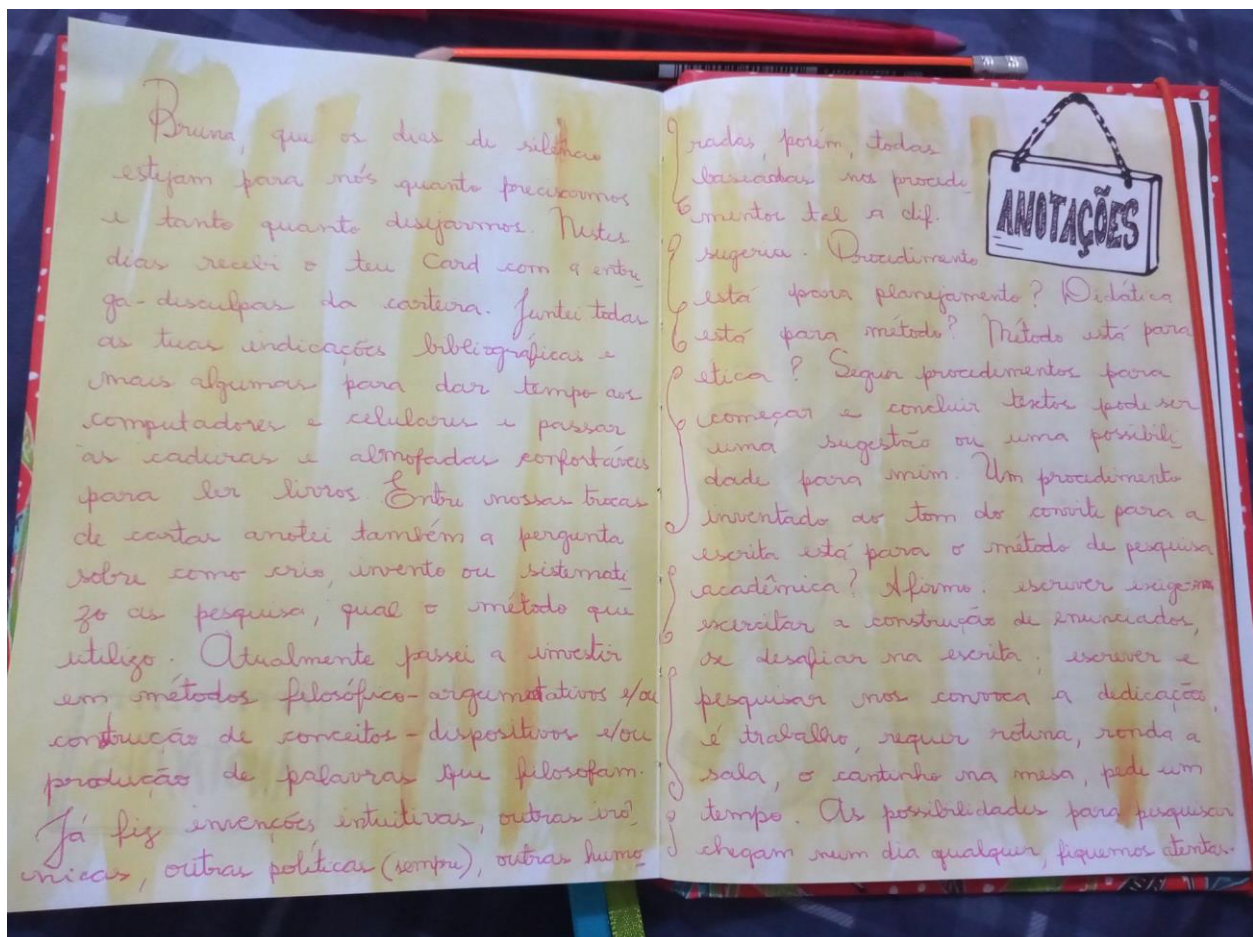 Bruna, que os dias de silêncio
estejam para nós quanto precisarmos
e tanto quanto desejarmos. Nestes
dias recebi o teu Card com a entre
ga-desculpas da carteira. Juntei todas
as tuas indicações bibliográficas e
mais algumas para dar tempo aos
computadores e celulares e passar
às cadeiras e almofadas confortáveis
para ler livros. Entre nossas trocas
de cartas anotei também a pergunta
sobre como crio, invento ou sistemati
zo as pesquisa, qual o método que
utilizo. Atualmente passei a investir
em métodos filosófico-argumentativos e/ou
construção de conceitos-dispositivos e/ou
produção de palavras que filosofam.
Já fiz invenções intuitivas, outras irô
nicas, outras políticas (sempre), outras humo
radas, porém, todas
baseadas nos procedi
mentos tal a dif.
sugeria. Procedimento
está para planejamento? Didática
está para método? Método está para
etica? Seguir procedimentos para
começar e concluir textos pode ser
uma sugestão ou uma possibili
dade para mim. Um procedimento
inventado ao tom do convite para a
escrita está para o método de pesquisa
acadêmica? Afirmo. escrever exige-
exercitar a construção de enunciados,
se desafiar na escrita; escrever e
pesquisar nos convoca a dedicação,
é trabalho, requer rotina, ronda a
sala, o cantinho na mesa, pede um
tempo. As possibilidades para pesquisar
chegam num dia qualquer, fiquemos atentas.
ANOTAÇÕES